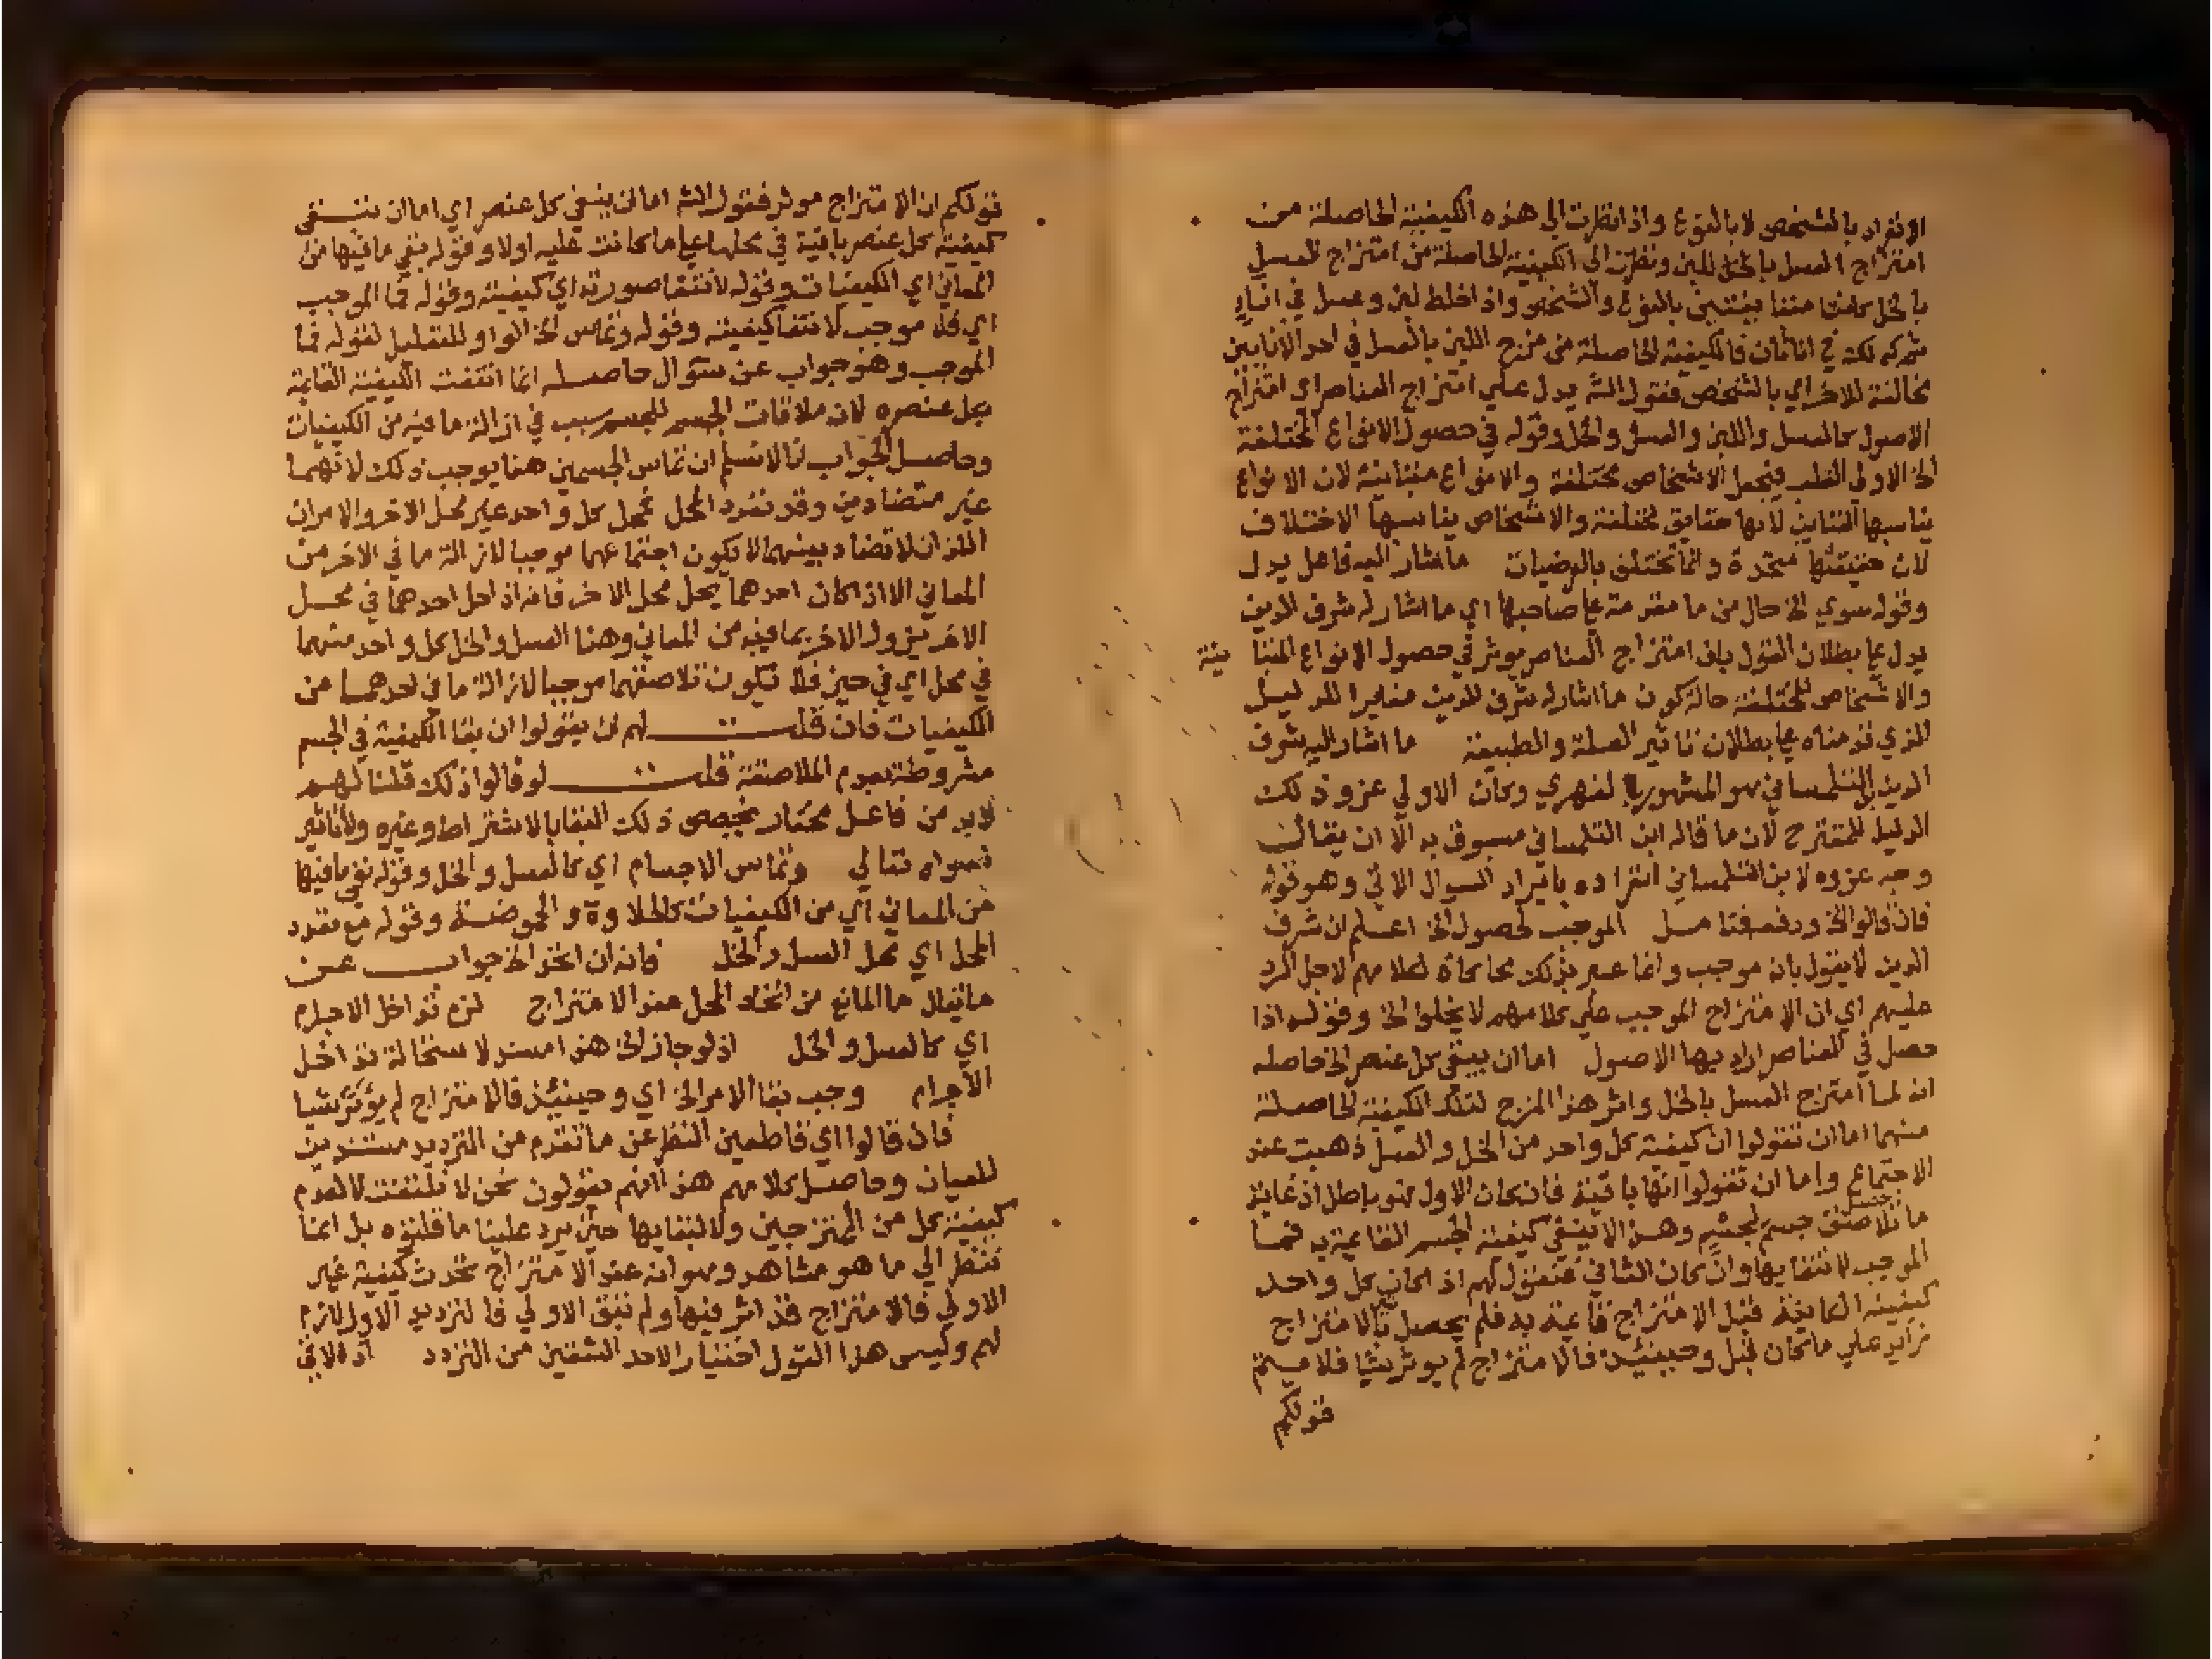 الانفراد بالشخص لا بالنوع واذا نظرت الي هذه الكيفية الحاصلة من
امتزاج العسل بالخل للين ونظرت الى الكيفية الحاصلة من امتزاج العسل
بالخل كانتا متباينتين بالنوع والشخص واذا خلط لبن وعسل في اناء
ثم كذلك في اناء ثان فالكيفية الحاصلة من مزج اللبن بالعسل في احد الانائين
مخالفة للاخر اي بالشخص فقول الش يدل علي امتزاج العناصر اي امتزاج
الاصول كالعسل واللبن والعسل والخل وقوله في حصول الانواع المختلفة
الخ الاولى القلب فيجعل الاشخاص مختلفة والانواع متباينة لان الانواع
يناسبها التباين لانها حقايق مختلفة والاشخاص يناسبها الاختلاف
لان حقيقتها متحدة وانما تختلف بالعرضيات ما اشار اليه فاعل يدل
وقوله سوي الخ حال من ما مقدمة علي صاحبها اي ما اشار له شرف الدين
يدل علي بطلان القول بان امتزاج العناصر يوثر في حصول الانواع المتباينة
والاشخاص المختلفة حالة كون ما اشار له شرف الدين مغايرا للدليل
الذي قدمناه علي بطلان تاثير العلة والطبيعة ما اشار اليه شرف
الدين بن التلمساني هو المشهور بالفهري وكان الاولي عزو ذلك
الدليل للمقترح لان ما قاله ابن التلمساني مسبوق به الا ان يقال
وجه عزوه لابن التلمساني انفراده بايراد السوال الاتي وهو قوله
فان قالوا الخ ودفعه فتامل الموجب لحصول الخ اعلم ان شرف
الدين لا يقول بانه موجب وانما عبر بذلك محاكاة لكلامهم لاجل الرد
عليهم اي ان الامتزاج الموجب علي كلامهم لا يخلوا الخ وقوله اذا
حصل في العناصر اراد بها الاصول اما ان يبقى كل عنصر الخ حاصله
انه لما امتزج العسل بالخل واثر هذا المزج لتلك الكيفية الحاصلة
منهما اما ان تقولوا ان كيفية كل واحد من الخل والعسل ذهبت عند
الاجتماع واما ان تقولوا انها باقية فان كان الاول فهو باطل اذ غاية
ما حصل تلاصق جسم لجسم وهذا لا ينفي كيفية الجسم القايمة به فما
الموجب لانتفايها وان كان الثاني فنقول لهم اذا كان كل واحد
كيفيته الكاينة قبل الامتزاج قايمة به فلم يحصل بالامتزاج
زايد علي ما كان قبل وحينئذ فالامتزاج لم يوثر شيا فلا يتم
قولكم
قولكم ان الامتزاج موثر فقول الش اما ان ينتفي كل عنصر اي اما ان تنتفي
كيفية كل عنصر باقية في محلها علي ما كانت عليه اولا وقوله بنفي ما فيها من
المعاني اي الكيفيات وقوله لانتفا صورته اي كيفيته وقوله فما الموجب
اي فلا موجب لانتفا كيفيته وقوله وتماس الخ الواو للتعليل لقوله فما
الموجب وهو جواب عن سوال حاصله انما انتفت الكيفية القايمة
بكل عنصره لان ملاقات الجسم للجسم سبب في ازالة ما فيه من الكيفيات
وحاصل الجواب انا لا نسلم ان تماس الجسمين هنا يوجب ذلك لانهما
غير متضادين وقد تفرد المحل فمحل كل واحد غير محل الاخر والامران
اللذان لا تضاد بينهما لا يكون اجتماعهما موجبا لازالة ما في الاخر من
المعاني الا اذا كان احدهما يحل محل الاخر فانه اذا حل احدهما في محل
الاخر يزول الاخر بما فيه من المعاني وهنا العسل والخل كل واحد منهما
في محل اي في حيز فلا تكون تلاصقهما موجبا لازالة ما في احدهما من
الكيفيات فان قلت لهم ان يقولوا ان بقا الكيفية في الجسم
مشروطة بعدم الملاصقة قلت لو قالوا ذلك قلنا لهم
لا بد من فاعل مختار يخصص ذلك البقا بالاشتراط وغيره ولا تاثير
لسواه تعالي وتماس الاجسام اي كالعسل والخل وقوله نفي ما فيها
من المعاني اي من الكيفيات كالحلاوة والحموضة وقوله مع تعدد
المحل اي محل العسل والخل فانه ان اتحد الخ جواب عن
ما يقال ما المانع من اتحاد المحل عند الامتزاج لزم تداخل الاجرام
اي كالعسل والخل اذ لو جاز الخ هذا مسند لاستحالة تداخل
الاجرام وجب بقا الامر الخ اي وحينئذ فالامتزاج لم يؤثر شيا
فان قالوا اي قاطعين النظر عن ما تقدم من الترديد مستندين
للعيان وحاصل كلامهم هذا انهم يقولون نحن لا نلتفت لعدم
كيفية كل من الممتزجين ولا لبقايها حتي يرد علينا ما قلتوه بل انما
ننظر الي ما هو مشاهد وهو انه عند الامتزاج تحدث كيفية غير
الاولي فالامتزاج قد اثر فيها ولم تبق الاولي فالترديد الاول لازم
لهم وليس هذا القول اختيار لاحد الشقين من التردد اذ الاتي